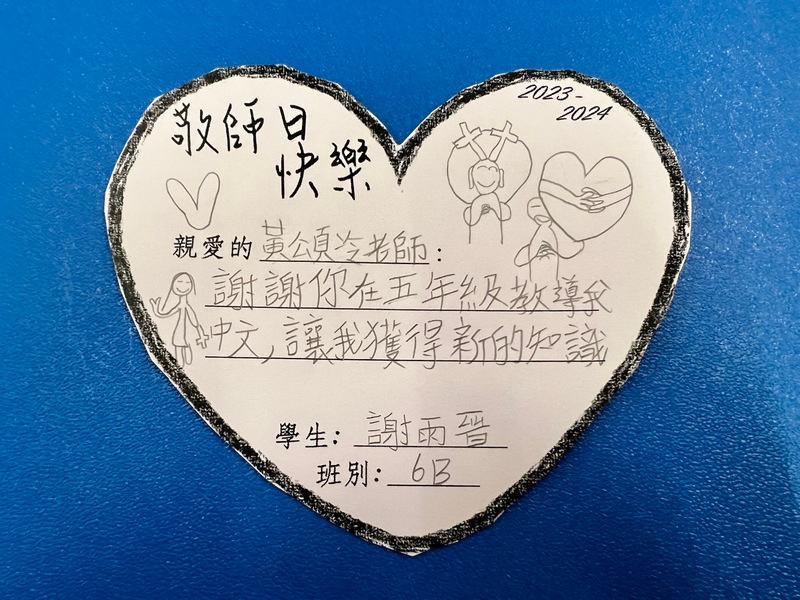 敬師日
快樂
2023-
2024
親愛的 黃頌冷老師：
謝謝你在五年級教導我
中文,讓我獲得新的知識
學生: 謝雨晉
班別: 6B